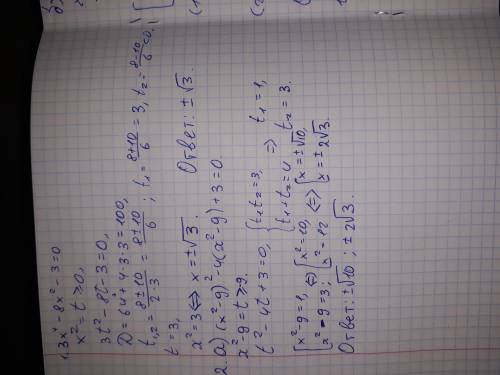 1. 3x⁴ - 8x² - 3 = 0
x² = t ≥ 0,
3t² - 8t - 3 = 0,
D = 64 + 4·3·3 = 100,
t₁,₂ = (8 ± 10)/(2·3) = (8 ± 10)/6 ; t₁ = (8+10)/6 = 3, t₂ = (8-10)/6 < 0.
t = 3,
x² = 3 ⇔ x = ±√3. Ответ: ±√3.
2. а) (x² - 9)² - 4(x² - 9) + 3 = 0.
x² - 9 = t ≥ -9.
t² - 4t + 3 = 0, { t₁t₂ = 3, t₁ + t₂ = 4 ⇒ t₁ = 1, t₂ = 3.
[ x² - 9 = 1, x² - 9 = 3; ⇔ [ x² = 10, x² = 12 ⇔ [ x = ±√10, x = ±2√3.
Ответ: ±√10 ; ±2√3.